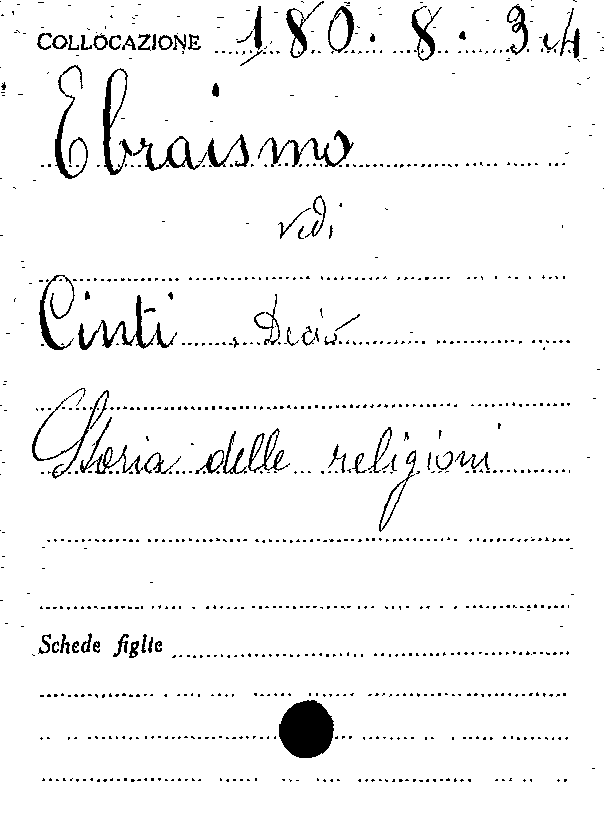 COLLOCAZIONE 180.8.34
Ebraismo
vedi
Cinti, Decio
Storia delle religioni
Schede figlie